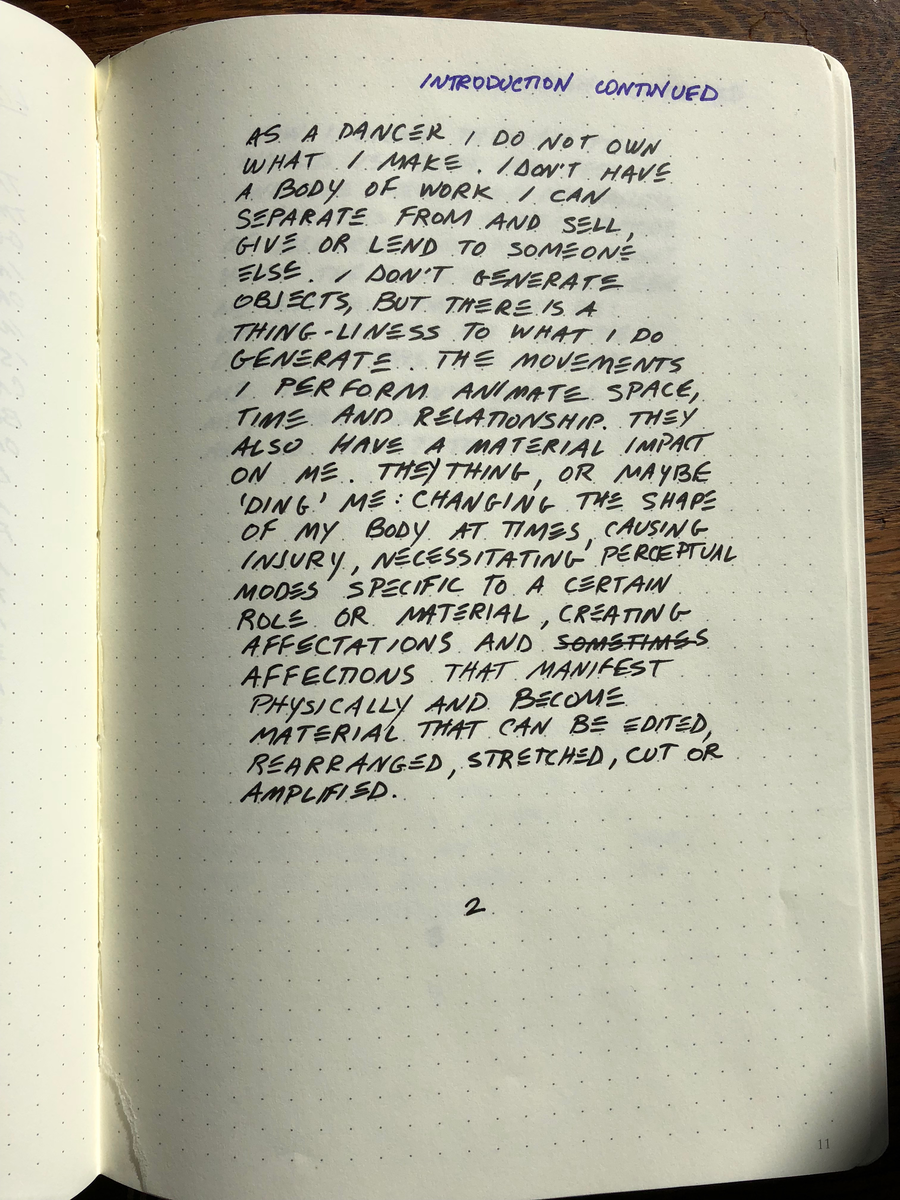 INTRODUCTION CONTINUED
AS A DANCER I DO NOT OWN
WHAT I MAKE. I DON'T HAVE
A BODY OF WORK I CAN
SEPARATE FROM AND SELL,
GIVE OR LEND TO SOMEONE
ELSE. I DON'T GENERATE
OBJECTS, BUT THERE IS A
THING-LINESS TO WHAT I DO
GENERATE. THE MOVEMENTS
I PERFORM ANIMATE SPACE,
TIME AND RELATIONSHIP. THEY
ALSO HAVE A MATERIAL IMPACT
ON ME. THEY THING, OR MAYBE
'DING' ME: CHANGING THE SHAPE
OF MY BODY AT TIMES, CAUSING
INJURY, NECESSITATING PERCEPTUAL
MODES SPECIFIC TO A CERTAIN
ROLE OR MATERIAL, CREATING
AFFECTATIONS AND SOMETIMES
AFFECTIONS THAT MANIFEST
PHYSICALLY AND BECOME
MATERIAL THAT CAN BE EDITED,
REARRANGED, STRETCHED, CUT OR
AMPLIFIED.
2
11